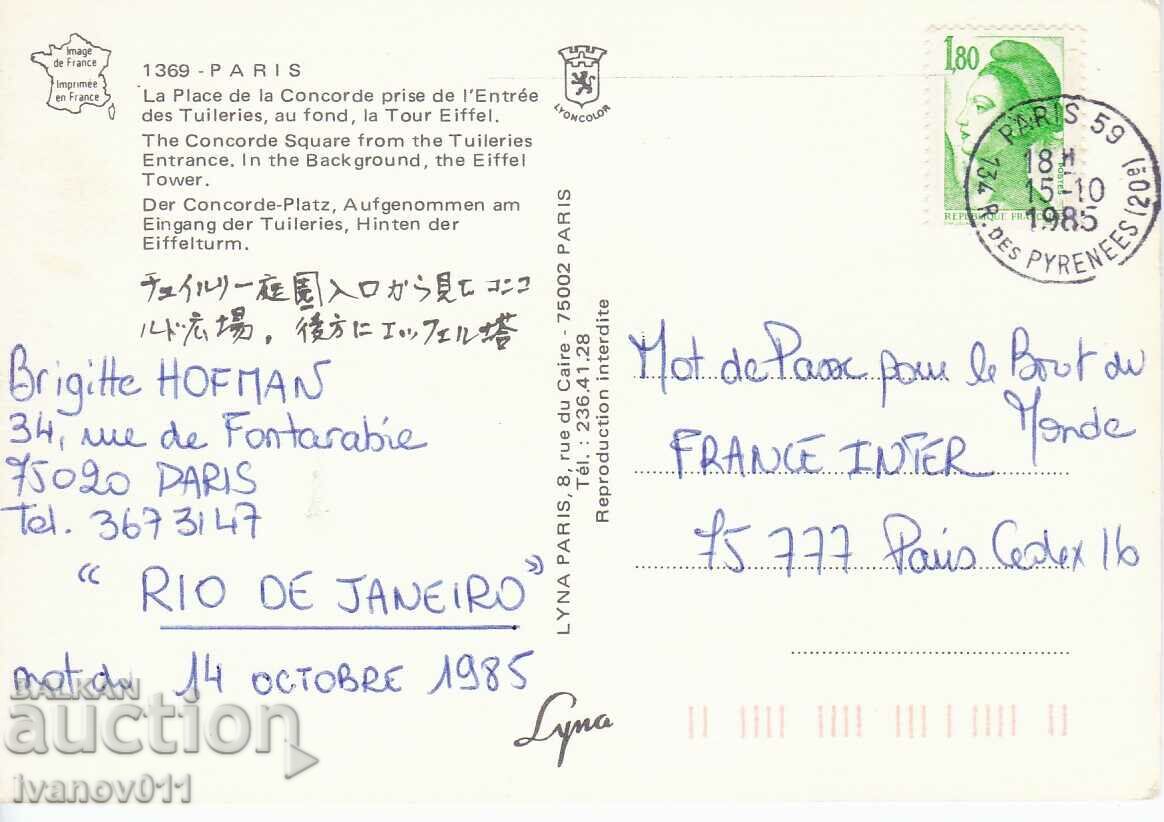 Image
de France
Imprimée
en France
1369 - PARIS
La Place de la Concorde prise de l'Entrée
des Tuileries, au fond, la Tour Eiffel.
The Concorde Square from the Tuileries
Entrance. In the Background, the Eiffel
Tower.
Der Concorde-Platz, Aufgenommen am
Eingang der Tuileries, Hinten der
Eiffelturm.
チュイルリー庭園入口から見たコンコ
ルド広場，後方にエッフェル塔
Brigitte HOFMAN
34, rue de Fontarabie
75020 PARIS
Tel. 3673147
" RIO DE JANEIRO "
mot du 14 OCTOBRE 1985
LYONCOLOR
LYNA PARIS, 8, rue du Caire - 75002 PARIS
Tél. : 236.41.28
Reproduction interdite
Lyna
1,80
POSTES
REPUBLIQUE FRANÇAISE
PARIS 59
18H
15-10
1985
134 R. DES PYRENEES (20è)
Mot de Passe pour le Bout du
Monde
FRANCE INTER
75777 Paris Cedex 16
BALKAN
auction
ivanov011